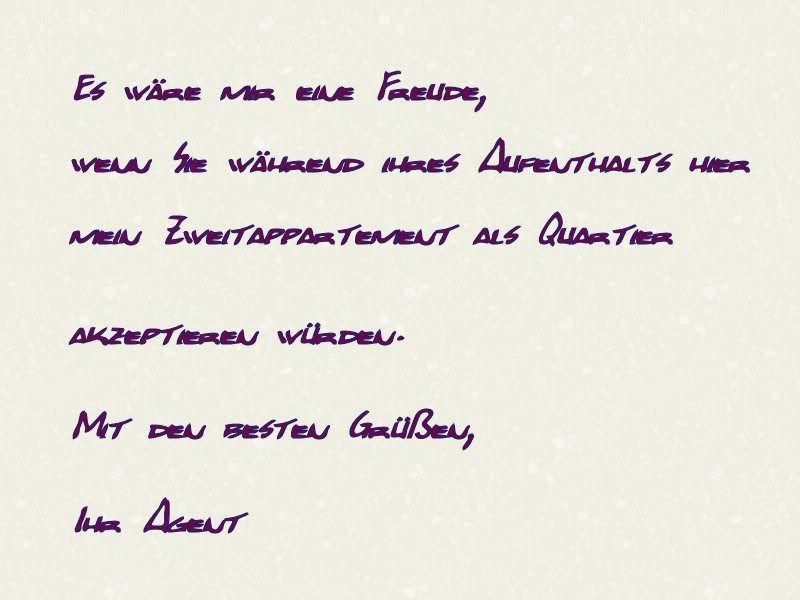 Es wäre mir eine Freude,
wenn Sie während ihres Aufenthalts hier
mein Zweitappartement als Quartier
akzeptieren würden.
Mit den besten Grüßen,
Ihr Agent